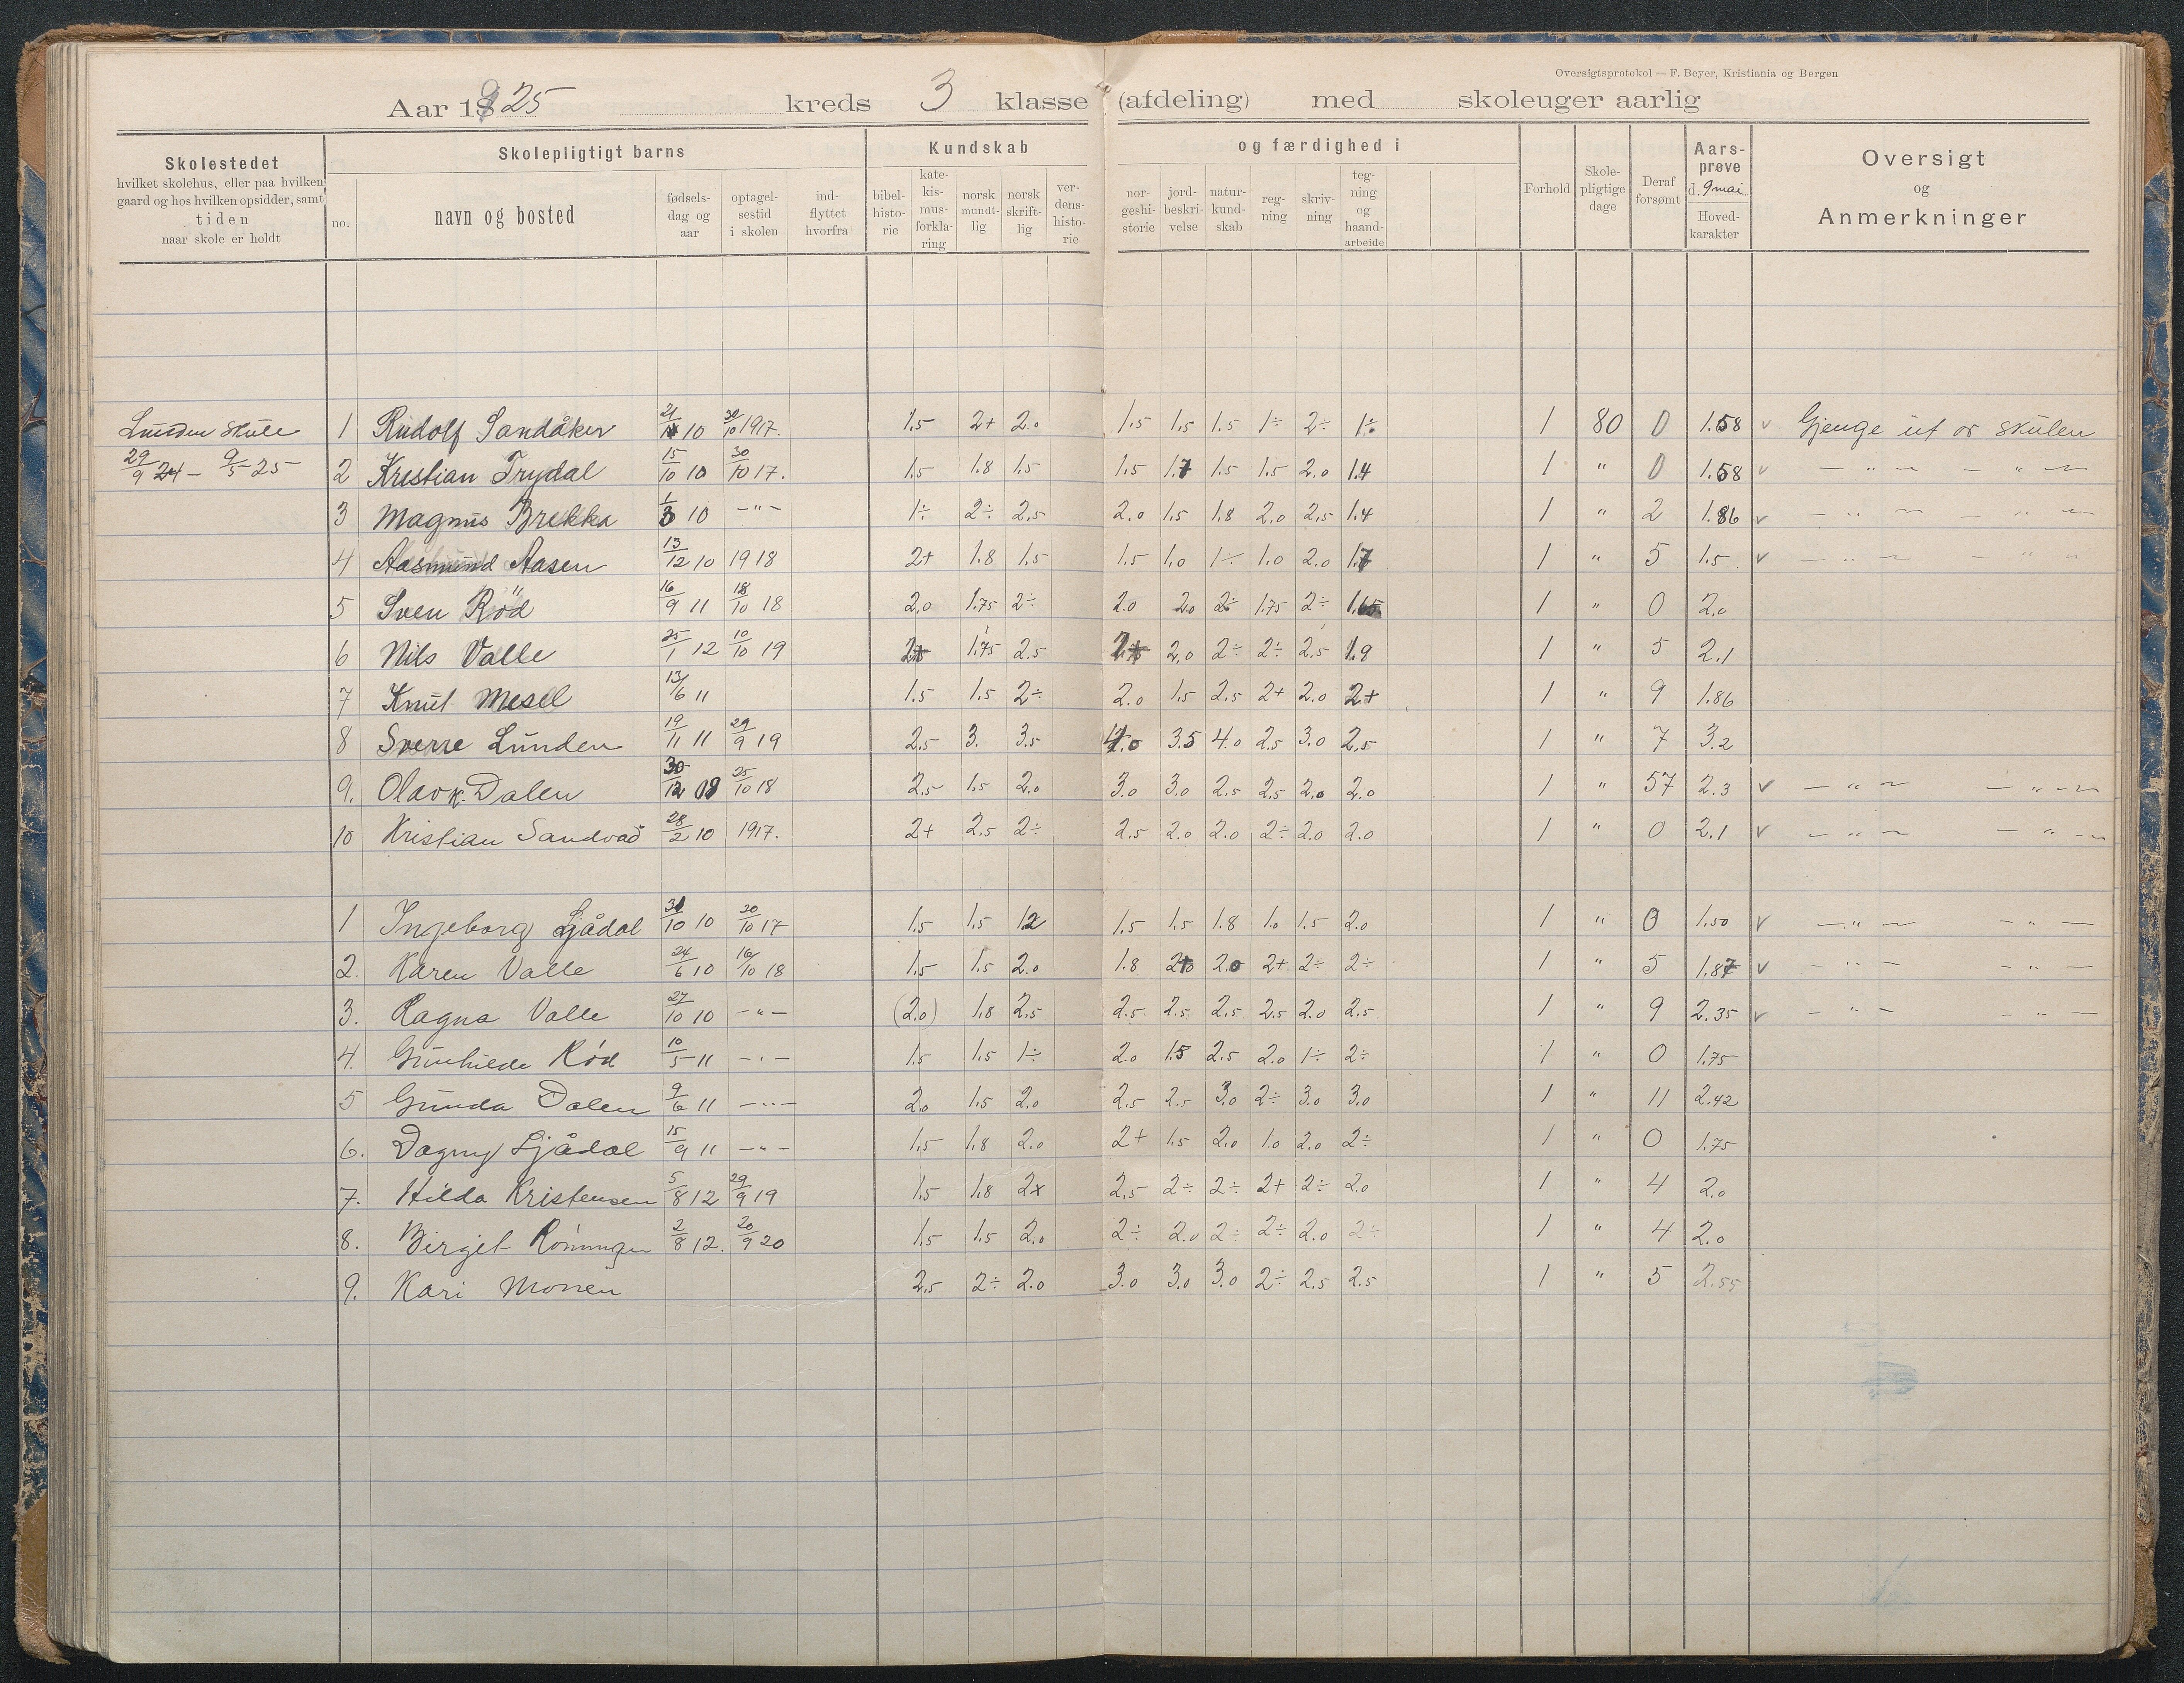 Oversigtsprotokol — F. Beyer, Kristiania og Bergen
Aar 1925 kreds 3 klasse (afdeling) med skoleuger aarlig
Skolestedet hvilket skolehus, eller paa hvilken gaard og hos hvilken opsidder, samt tiden naar skole er holdt
Skolepligtigt barns
no. navn og bosted fødsels-dag og aar optagel-sestid i skolen ind-flyttet hvorfra
Kundskab og færdighed i
bibel-histo-rie kate-kis-mus-forkla-ring norsk mundt-lig norsk skrift-lig ver-dens-histo-rie nor-geshi-storie jord-beskri-velse natur-kund-skab reg-ning skriv-ning teg-ning og haand-arbeide
Forhold Skole-pligtige dage Deraf forsømt Aars-prøve d. 9 mai Hoved-karakter
Oversigt og Anmerkninger
Lunden skule 1 Rudolf Sandåker 21/11 10 30/10 1917. 1.5 2+ 2.0 1.5 1.5 1.5 1÷ 2÷ 1÷ 1 80 0 1.58 v Gjenge ut or skulen
29/9 24 – 9/5 25 2 Kristian Trydal 15/10 10 30/10 17. 1.5 1.8 1.5 1.5 1.7 1.5 1.5 2.0 1.4 1 " 0 1.58 v — " — — " —
3 Magnus Brekka 1/3 10 — " — 1÷ 2÷ 2.5 2.0 1.5 1.8 2.0 2.5 1.4 1 " 2 1.86 v — " — — " —
4 Aasmund Aasen 13/12 10 1918 2+ 1.8 1.5 1.5 1.0 1÷ 1.0 2.0 1.7 1 " 5 1.5 v — " — — " —
5 Sven Röd 16/9 11 18/10 18 2.0 1.75 2÷ 2.0 2.0 2÷ 1.75 2÷ 1.65 1 " 0 2.0
6 Nils Valle 25/1 12 10/10 19 1.75 2.5 2.0 2÷ 2÷ 2.5 1.9 1 " 5 2.1
7 Knut Mesel 13/6 11 1.5 1.5 2÷ 2.0 1.5 2.5 2+ 2.0 2+ 1 " 9 1.86
8 Sverre Lunden 19/11 11 29/9 19 2.5 3. 3.5 4.0 3.5 4.0 2.5 3.0 2.5 1 " 7 3.2
9. Olav K. Dalen 30/12 09 25/10 18 2.5 1.5 2.0 3.0 3.0 2.5 2.5 2.0 2.0 1 " 57 2.3 v — " — — " —
10 Kristian Sandvad 28/2 10 1917. 2+ 2.5 2÷ 2.5 2.0 2.0 2÷ 2.0 2.0 1 " 0 2.1 v — " — — " —
1 Ingeborg Ljådal 31/10 10 30/10 17 1.5 1.5 1.5 1.5 1.8 1.0 1.5 2.0 1 " 0 1.50 v — " — — " —
2. Karen Valle 24/6 10 16/10 18 1.5 1.5 2.0 1.8 2.0 2+ 2÷ 2÷ 1 " 5 1.87 v — " — — " —
3. Ragna Valle 27/10 10 — " — (2.0) 1.8 2.5 2.5 2.5 2.5 2.5 2.0 2.5 1 " 9 2.35 v — " — — " —
4. Gunhilde Röd 10/5 11 — " — 1.5 1.5 1÷ 2.0 1.5 2.5 2.0 1÷ 2÷ 1 " 0 1.75
5 Gunda Dalen 9/6 11 — " — 2.0 1.5 2.0 2.5 2.5 3.0 2÷ 3.0 3.0 1 " 11 2.42
6. Dagny Ljådal 15/9 11 — " — 1.5 1.8 2.0 2+ 1.5 2.0 1.0 2.0 2÷ 1 " 0 1.75
7. Hilda Kristensen 5/8 12 29/9 19 1.5 1.8 2x 2.5 2÷ 2÷ 2+ 2÷ 2.0 1 " 4 2.0
8. Birgit 2/8 12. 20/9 20 1.5 1.5 2.0 2÷ 2.0 2÷ 2÷ 2.0 2÷ 1 " 4 2.0
9. Kari Monen 2.5 2÷ 2.0 3.0 3.0 3.0 2÷ 2.5 2.5 1 " 5 2.55